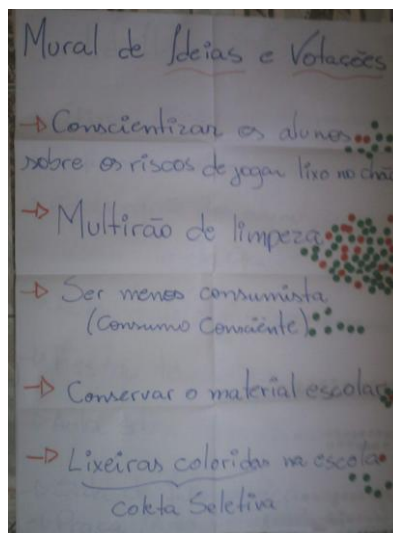 Mural de Ideias e Votações
→ Conscientizar os alunos
sobre os riscos de jogar lixo no chão
→ Multirão de limpeza
→ Ser menos consumista
(Consumo Consciente)
→ Conservar o material escolar
→ Lixeiras coloridas na escola
coleta Seletiva